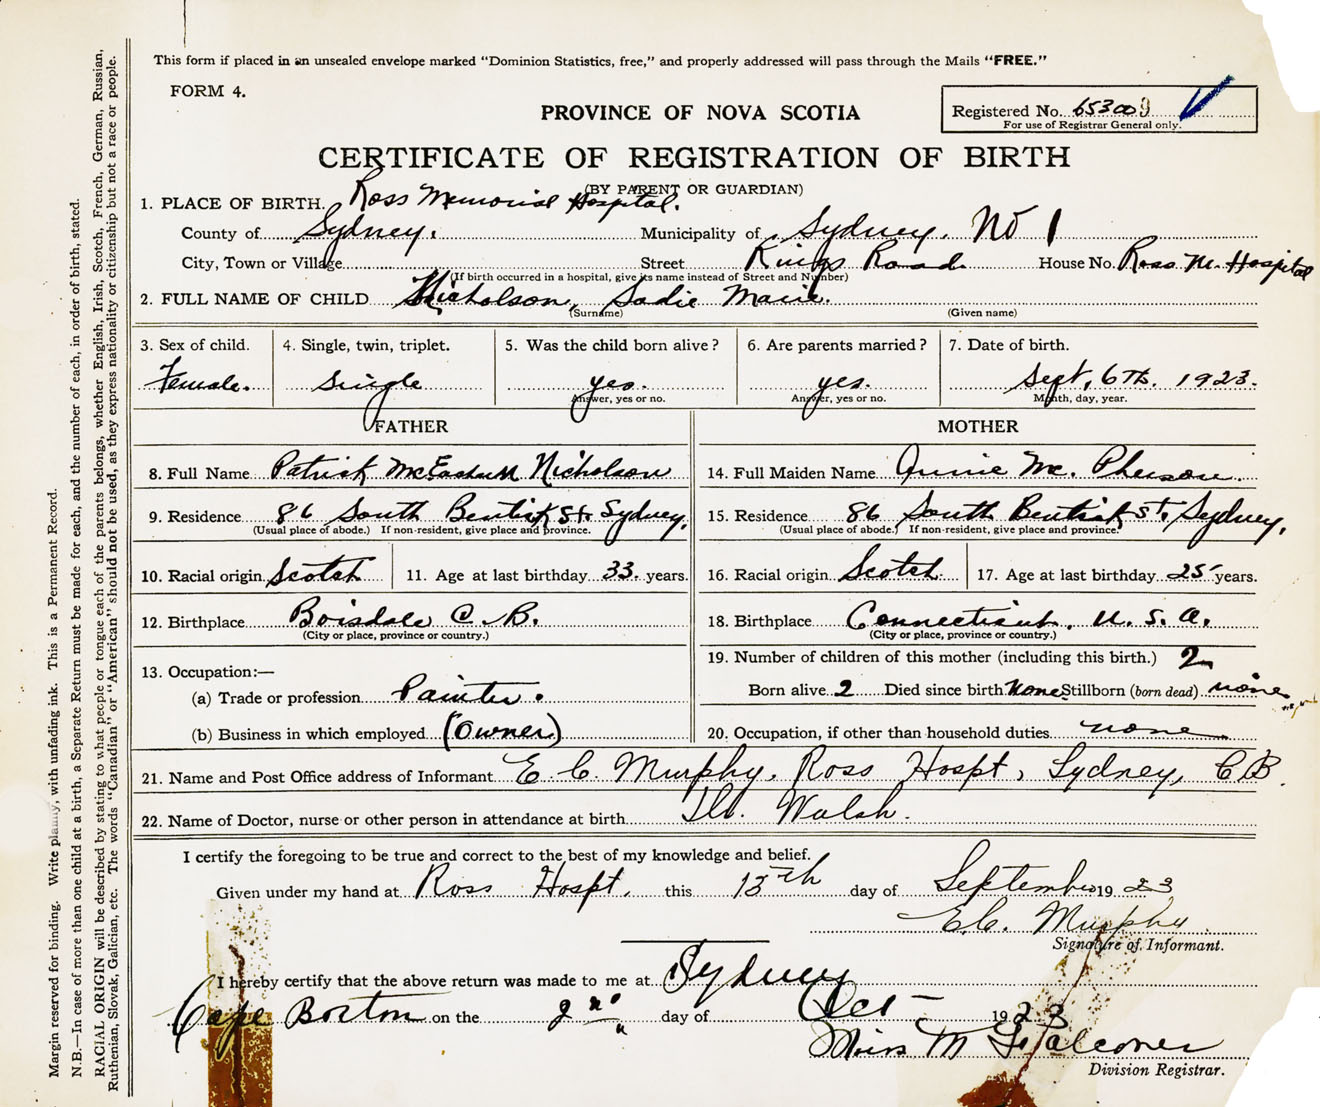 This form if placed in an unsealed envelope marked "Dominion Statistics, free," and properly addressed will pass through the Mails "FREE."
FORM 4.
PROVINCE OF NOVA SCOTIA
Registered No. 653009
For use of Registrar General only.
CERTIFICATE OF REGISTRATION OF BIRTH
(BY PARENT OR GUARDIAN)
1. PLACE OF BIRTH. Ross Memorial Hospital.
County of Sydney. Municipality of Sydney. No 1
City, Town or Village Street Kings Road House No. Ross M. Hospital
(If birth occurred in a hospital, give its name instead of Street and Number)
2. FULL NAME OF CHILD Nicholson, Sadie Marie.
(Surname) (Given name)
3. Sex of child. 4. Single, twin, triplet. 5. Was the child born alive? 6. Are parents married? 7. Date of birth.
Female. Single yes. yes. Sept. 6th. 1923.
Answer, yes or no. Answer, yes or no. Month, day, year.
FATHER MOTHER
8. Full Name Patrick Nicholson 14. Full Maiden Name Annie Mc. Pherson.
9. Residence 86 South Bentick St. Sydney. 15. Residence 86 South Bentick St. Sydney.
(Usual place of abode.) If non-resident, give place and province. (Usual place of abode.) If non-resident, give place and province.
10. Racial origin. Scotch 11. Age at last birthday 33. years. 16. Racial origin. Scotch. 17. Age at last birthday 25 years.
12. Birthplace Boisdale C.B. 18. Birthplace Connecticut. U.S.A.
(City or place, province or country.) (City or place, province or country.)
13. Occupation:— 19. Number of children of this mother (including this birth.) 2
(a) Trade or profession Painter. Born alive 2 Died since birth None Stillborn (born dead) none
(b) Business in which employed (Owner) 20. Occupation, if other than household duties none
21. Name and Post Office address of Informant E. C. Murphy. Ross Hospt, Sydney, C B.
22. Name of Doctor, nurse or other person in attendance at birth Walsh.
I certify the foregoing to be true and correct to the best of my knowledge and belief.
Given under my hand at Ross Hospt. this 13th day of September 1923
E.C. Murphy
Signature of Informant.
I hereby certify that the above return was made to me at Sydney
Cape Breton on the 2nd day of Oct 1923
Miss M Falconer
Division Registrar.
Margin reserved for binding. Write plainly, with unfading ink. This is a Permanent Record.
N.B.—In case of more than one child at a birth, a Separate Return must be made for each, and the number of each, in order of birth, stated.
RACIAL ORIGIN will be described by stating to what people or tongue each of the parents belongs, whether English, Irish, Scotch, French, German, Russian,
Ruthenian, Slovak, Galician, etc. The words "Canadian" or "American" should not be used, as they express nationality or citizenship but not a race or people.